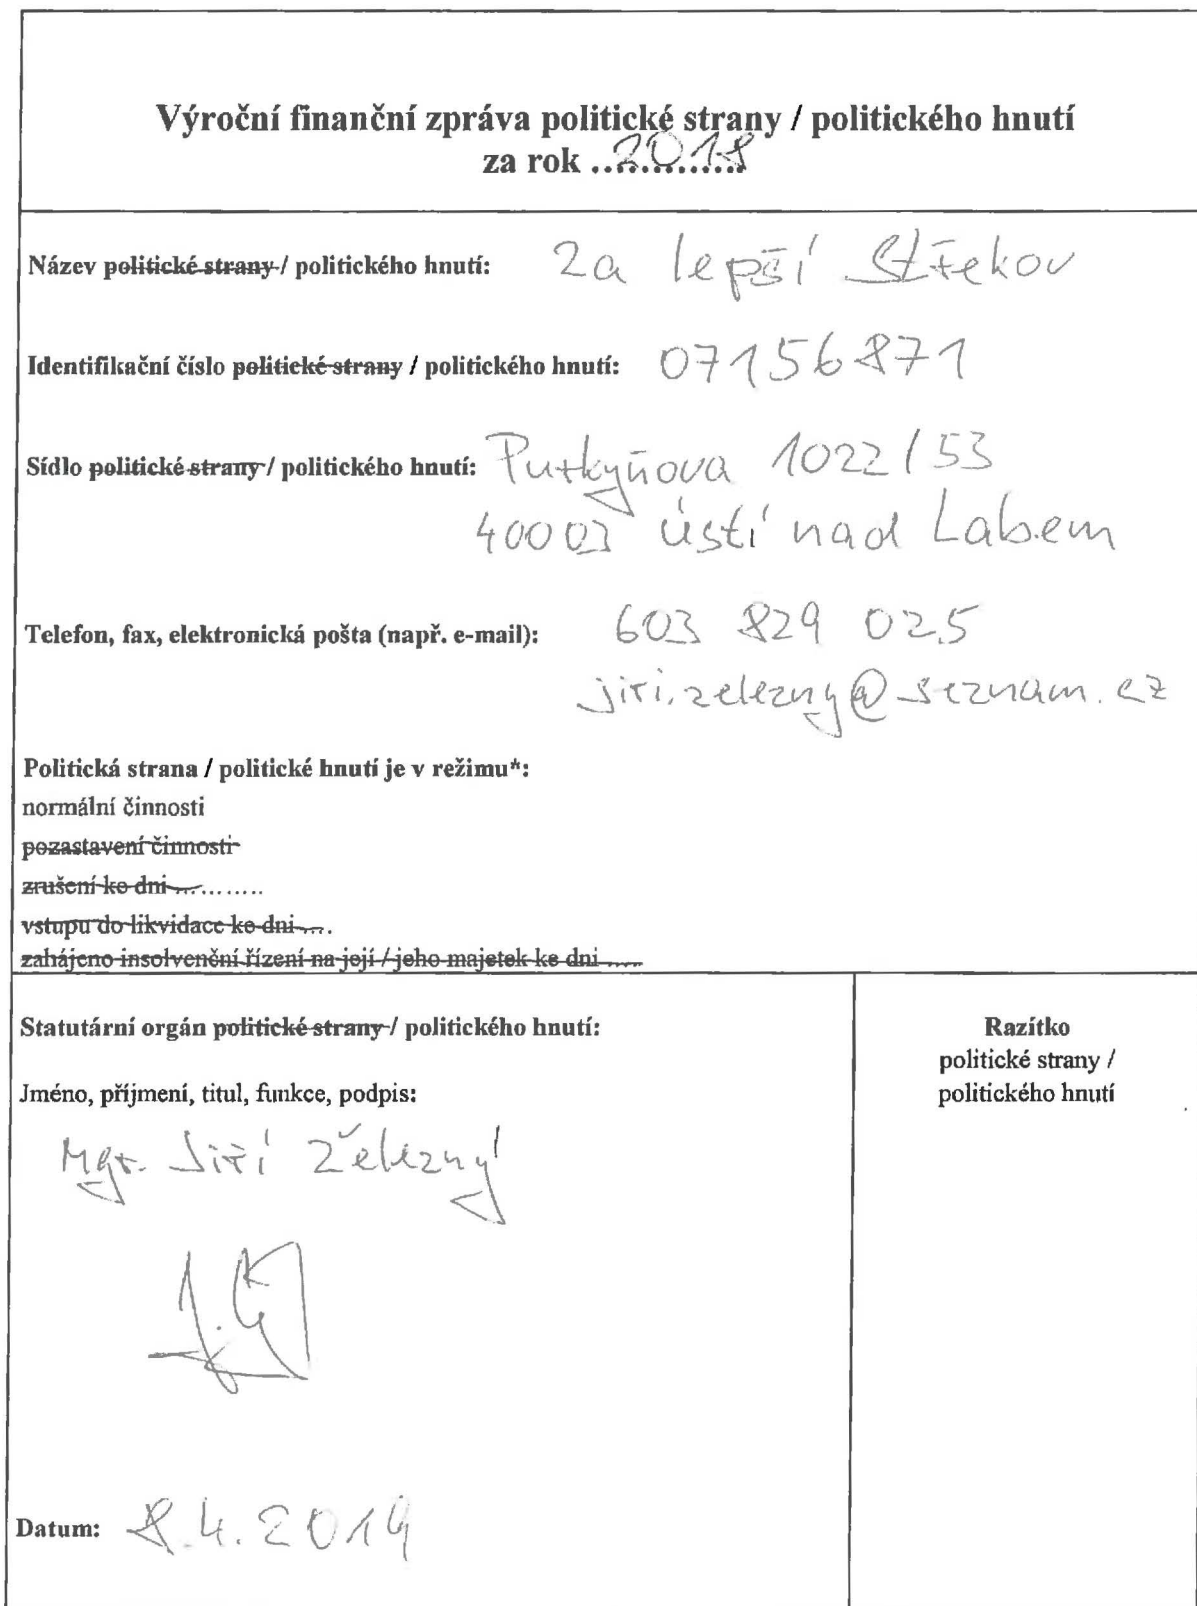 Výroční finanční zpráva politické strany / politického hnutí
za rok ..2018
Název politické strany / politického hnutí: Za lepší Střekov
Identifikační číslo politické strany / politického hnutí: 07156871
Sídlo politické strany / politického hnutí: Purkyňova 1022/53
40003 Ústí nad Labem
Telefon, fax, elektronická pošta (např. e-mail): 603 829 025
jiri.zelezny@seznam.cz
Politická strana / politické hnutí je v režimu*:
normální činnosti
pozastavení činnosti
zrušení ke dni ...........
vstupu do likvidace ke dni ....
zahájeno insolvenční řízení na její / jeho majetek ke dni .....
Statutární orgán politické strany / politického hnutí:
Jméno, příjmení, titul, funkce, podpis:
Mgr. Jiří Železný
Datum: 8.4.2019
Razítko
politické strany /
politického hnutí